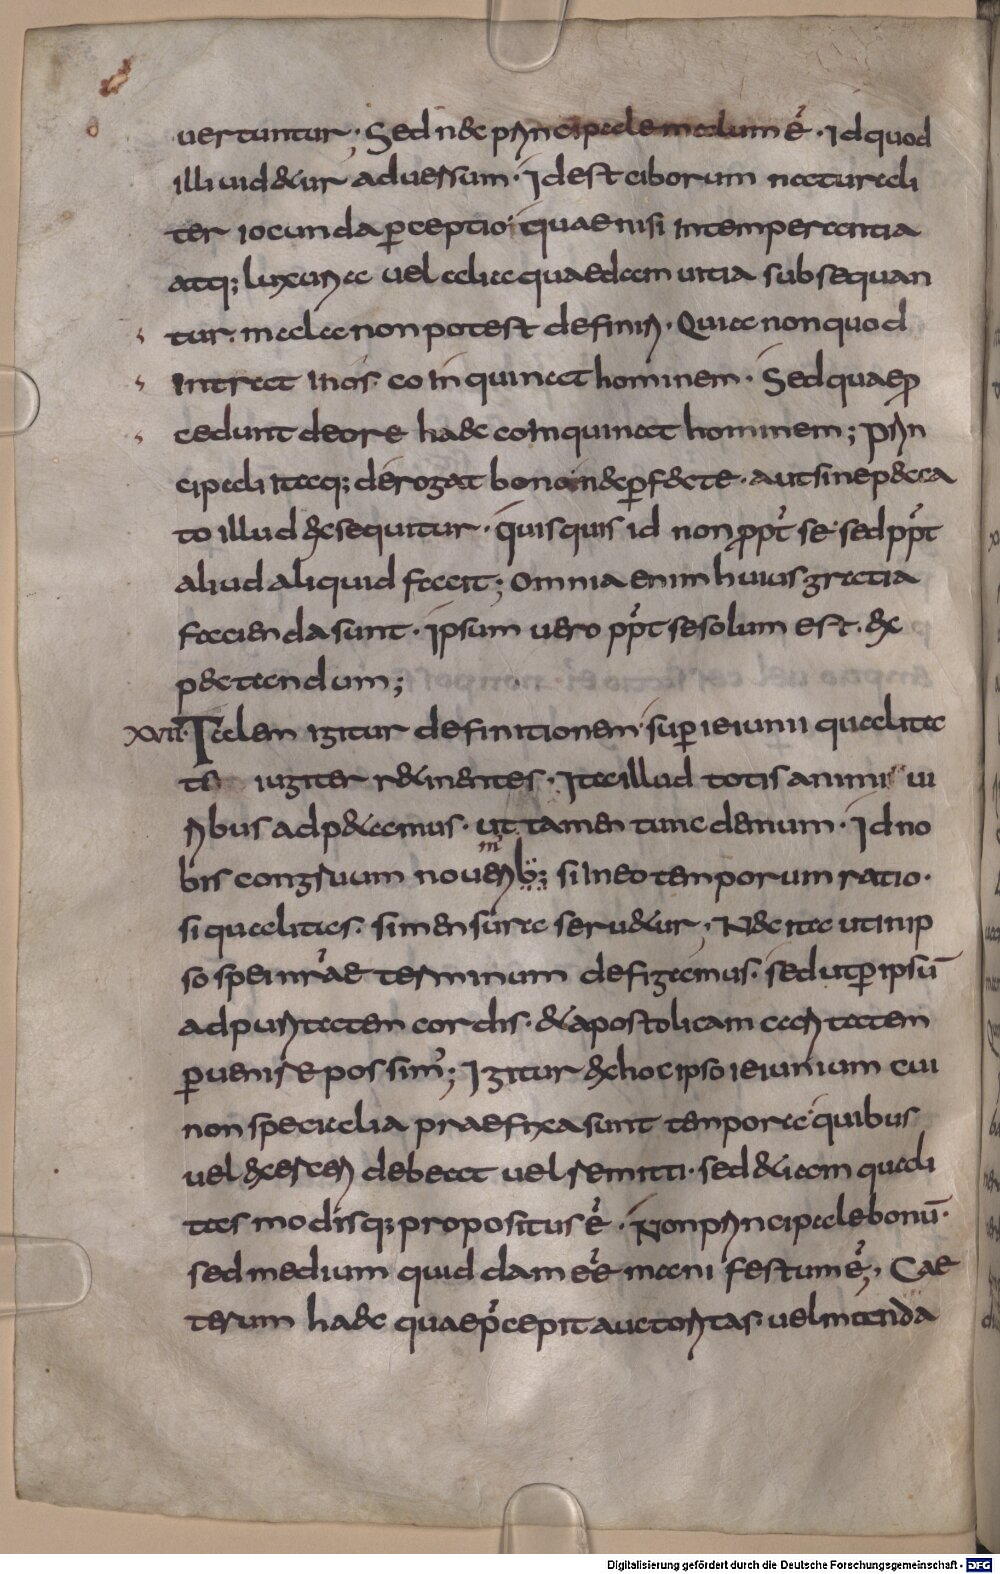 uertuntur; Sed nec principale malum ē̓. Id quod
illi uidetur aduersum. Id est ciborum naturali
ter iocunda ꝑceptio. quae nisi intemperantia
atq; luxuria uel alia quaedam uitia subsequan
tur. mala non potest definiri. Quia non quod
intrat in os. coinquinat hominem. Sed quae ꝓ
cedunt de ore haec coinquinant hominem; Prin
cipali itaq; derogat bono. nec ꝑfecte. aut sine pecca
to illud exsequitur. quisquis id non ꝓpt̓ se sed ꝓpt̓
aliud aliquid facit; Omnia enim huius gratia
facienda sunt. Ipsum uero ꝓpt̓ se solum est. ex
petendum;
XVII. Talem igitur definitionem. suꝑ ieiunii qualita
te iugiter retinentes. Ita illud totis animi ui
ribus adpetamus. ut tamen tunc demum. Id no
bis congruum nouerimus; si in eo temporum ratio.
si qualitas. si mensura seruetur; Nec ita ut in ip
so spei nr̓ae terminum defigamus. sed ut ꝑ ipsū
ad puritatem cordis. et apostolicam caritatem
ꝑuenire possim̓; Igitur ex hoc ipso ieiunium cui
non specialia praefixa sunt tempora. quibus
uel exerceri debeat uel remitti. sed etiam quali
tas modisq; propositus ē̓. Non principale bonū.
sed medium quiddam eē̓ manifestum ē̓; Cae
terum haec quae p̓cepit auctoritas. uel intenda